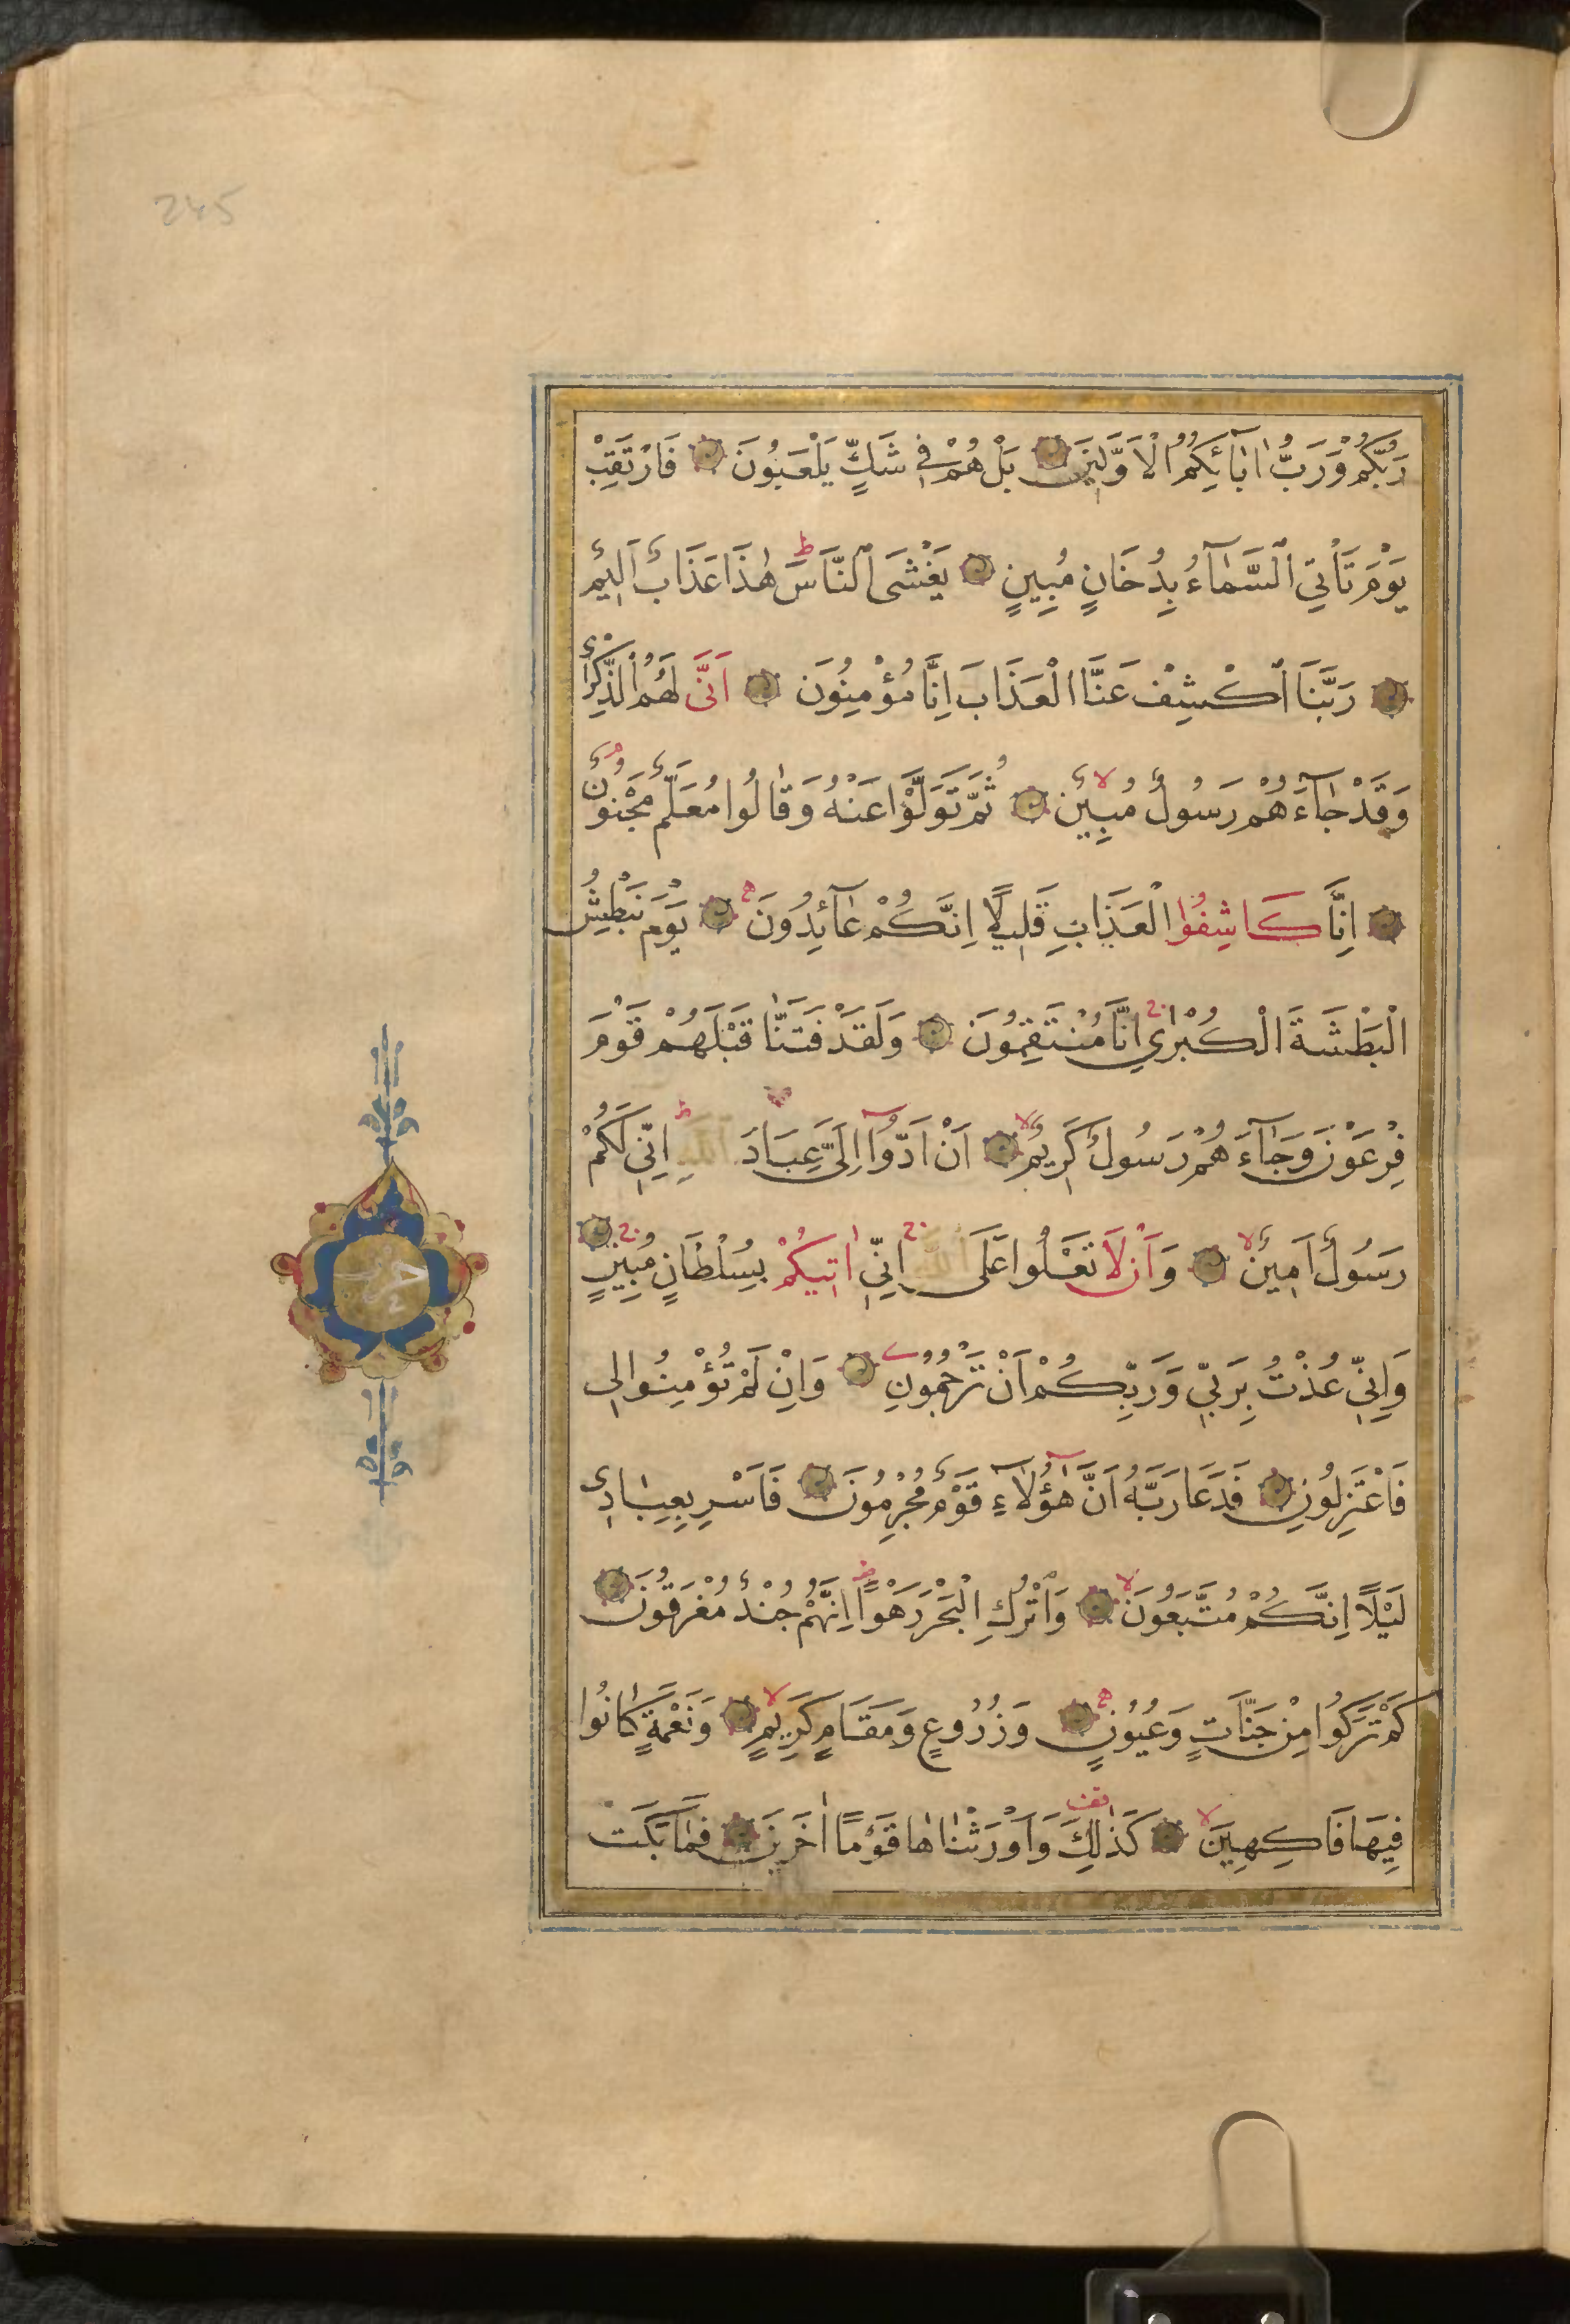 245
رَبُّكُمْ وَرَبُّ اٰبَآئِكُمُ الْاَوَّلِينَ بَلْ هُمْ فِي شَكٍّ يَلْعَبُونَ فَارْتَقِبْ
يَوْمَ تَأْتِي السَّمَآءُ بِدُخَانٍ مُبِينٍ يَغْشَى النَّاسَ ط هٰذَا عَذَابٌ اَلِيمٌ
رَبَّنَا اكْشِفْ عَنَّا الْعَذَابَ اِنَّا مُؤْمِنُونَ اَنَّى لَهُمُ الذِّكْرٰى
وَقَدْ جَآءَهُمْ رَسُولٌ مُبِينٌ لا ثُمَّ تَوَلَّوْا عَنْهُ وَقَالُوا مُعَلَّمٌ مَجْنُونٌ م
اِنَّا كَاشِفُوا الْعَذَابِ قَلِيلًا اِنَّكُمْ عَآئِدُونَ يَوْمَ نَبْطِشُ
الْبَطْشَةَ الْكُبْرٰي ج اِنَّا مُنْتَقِمُونَ وَلَقَدْ فَتَنَّا قَبْلَهُمْ قَوْمَ
فِرْعَوْنَ وَجَآءَهُمْ رَسُولٌ كَرِيمٌ لا اَنْ اَدُّوٓا اِلَيَّ عِبَادَ اللهِ ط اِنِّي لَكُمْ
رَسُولٌ اَمِينٌ لا وَاَنْ لَا تَعْلُوا عَلَى اللهِ ج اِنِّي اٰتِيكُمْ بِسُلْطَانٍ مُبِينٍ ج
وَاِنِّي عُذْتُ بِرَبِّي وَرَبِّكُمْ اَنْ تَرْجُمُونِ وَاِنْ لَمْ تُؤْمِنُوا لِي
فَاعْتَزِلُونِ فَدَعَا رَبَّهُ اَنَّ هٰٓؤُلَآءِ قَوْمٌ مُجْرِمُونَ فَاَسْرِ بِعِبَادِي
لَيْلًا اِنَّكُمْ مُتَّبَعُونَ لا وَاتْرُكِ الْبَحْرَ رَهْوًا ط اِنَّهُمْ جُنْدٌ مُغْرَقُونَ
كَمْ تَرَكُوا مِنْ جَنَّاتٍ وَعُيُونٍ وَزُرُوعٍ وَمَقَامٍ كَرِيمٍ لا وَنَعْمَةٍ كَانُوا
فِيهَا فَاكِهِينَ لا كَذٰلِكَ قف وَاَوْرَثْنَاهَا قَوْمًا اٰخَرِينَ فَمَا بَكَتْ